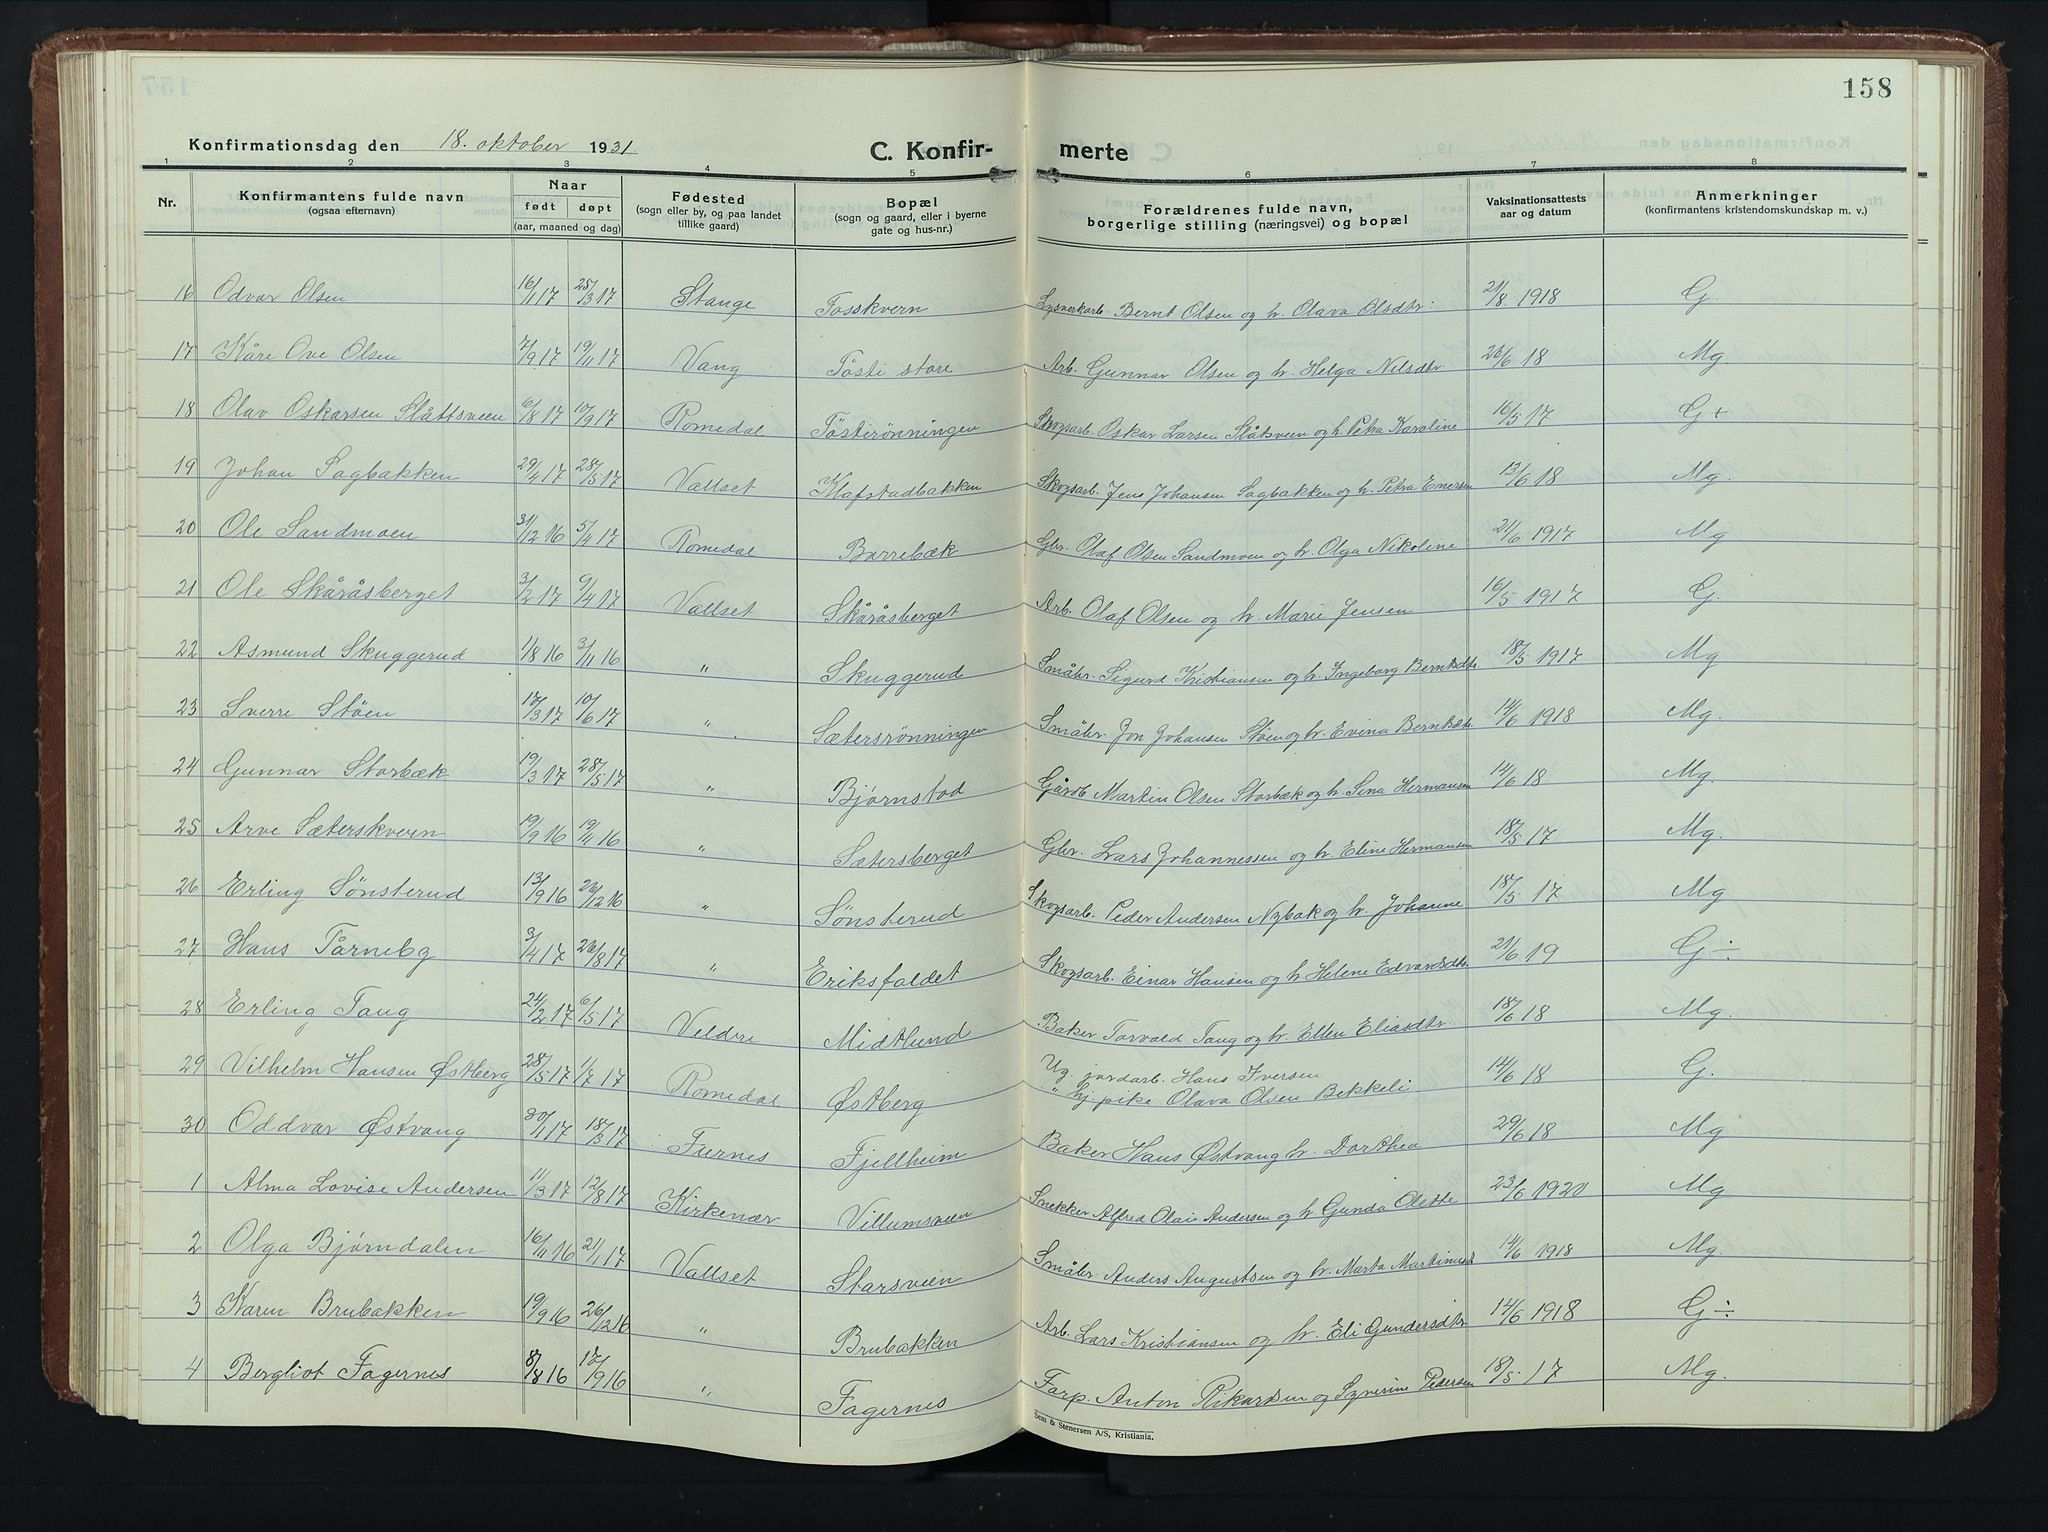 158
Konfirmationsdag den 18. oktober 1931
C. Konfir- merte
1 2 3 4 5 6 7 8
Nr.
Konfirmantens fulde navn
(ogsaa efternavn)
Naar
født døpt
(aar, maaned og dag)
Fødested
(sogn eller by, og paa landet
tillike gaard)
Bopæl
(sogn og gaard, eller i byerne
gate og hus-nr.)
Forældrenes fulde navn,
borgerlige stilling (næringsvei) og bopæl
Vaksinationsattests
aar og datum
Anmerkninger
(konfirmantens kristendomskundskap m. v.)
16 Odvar Olsen 16/1 17 25/3 17 Stange Fosskvern Lysverkarb. Bernt Olsen og h. Olava Olsdtr. 21/8 1918 G.
17 Kåre Ove Olsen 7/9 17 19/11 17 Vang Tösti store Arb. Gunnar Olsen og h. Helga Nilsdtr 26/6 18 Mg.
18 Olav Oskarsen Slåttsveen 6/8 17 10/9 17 Romedal Töstirönningen Skogsarb. Oskar Larsen Slåtsveen og h. Petra Karoline 16/5 17 G+
19 Johan Sagbakken 29/4 17 28/5 17 Vallset Klafstadbakken Skogsarb. Jens Johansen Sagbakken og h. Petra Enersen 13/6 18 Mg.
20 Ole Sandmoen 31/12 16 5/4 17 Romedal Borrebæk Gbr. Olaf Olsen Sandmoen og h. Olga Nikoline 21/6 1917 Mg
21 Ole Skåråsberget 3/2 17 9/4 17 Vallset Skåråsberget Arb. Olaf Olsen og h. Marie Jensen 16/5 1917 G.
22 Asmund Skuggerud 1/8 16 3/11 16 " Skuggerud Småbr. Sigurd Kristiansen og h. Ingeborg Berntsdtr 18/5 1917 Mg
23 Sverre Stöen 17/3 17 10/6 17 " Sætersrönningen Småbr. Jon Johansen Stöen og h. Evina Berntsdtr. 14/6 1918 Mg.
24 Gunnar Storbæk 19/3 17 28/5 17 " Bjørnstad Gårdb Martin Olsen Storbæk og h. Sina Hermansen 14/6 18 Mg.
25 Arve Sæterskvern 19/9 16 19/11 16 " Sætersberget Gbr. Lars Johannessen og h. Eline Hermansen 18/5 17 Mg.
26 Erling Sönsterud 13/9 16 26/12 16 " Sönsterud Skogsarb. Peder Andersen Nybak og h. Johanne 18/5 17 Mg
27 Hans Tårneby 3/4 17 26/8 17 " Eriksfaldet Skogsarb. Einar Hansen og h Helene Edvardsdtr. 21/6 19 G÷
28 Erling Tang 24/2 17 6/5 17 Veldre Midtlund Baker Torvald Tang og h. Ellen Eliasdtr. 18/6 18 Mg.
29 Vilhelm Hansen Østberg 28/5 17 1/7 17 Romedal Østberg Ug. jordarb. Hans Iversen
" hj. pike Olava Olsen Bekkeli 14/6 18 G.
30 Oddvar Østvang 30/1 17 18/3 17 Furnes Fjellheim Baker Hans Østvang h. Dorthea 29/6 18 Mg
1 Alma Lovise Andersen 11/3 17 12/8 17 Kirkenær Villumsveen Snekker Alfred Olais Andersen og h Gunda Olette 23/6 1920 Mg
2 Olga Bjørndalen 16/11 16 21/1 17 Vallset Starsveen Småbr. Anders Augustsen og h. Marta Martinusd 14/6 1918 Mg.
3 Karen Brubakken 19/9 16 26/12 16 " Brubakken Arb. Lars Kristiansen og h. Eli Gundersdtr 14/6 1918 G÷
4 Bergliot Fagernes 8/8 16 17/9 16 " Fagernes Farp. Anton Rikardsen og Synerine Pedersen 18/5 17 Mg.
Sem & Stenersen A/S, Kristiania.